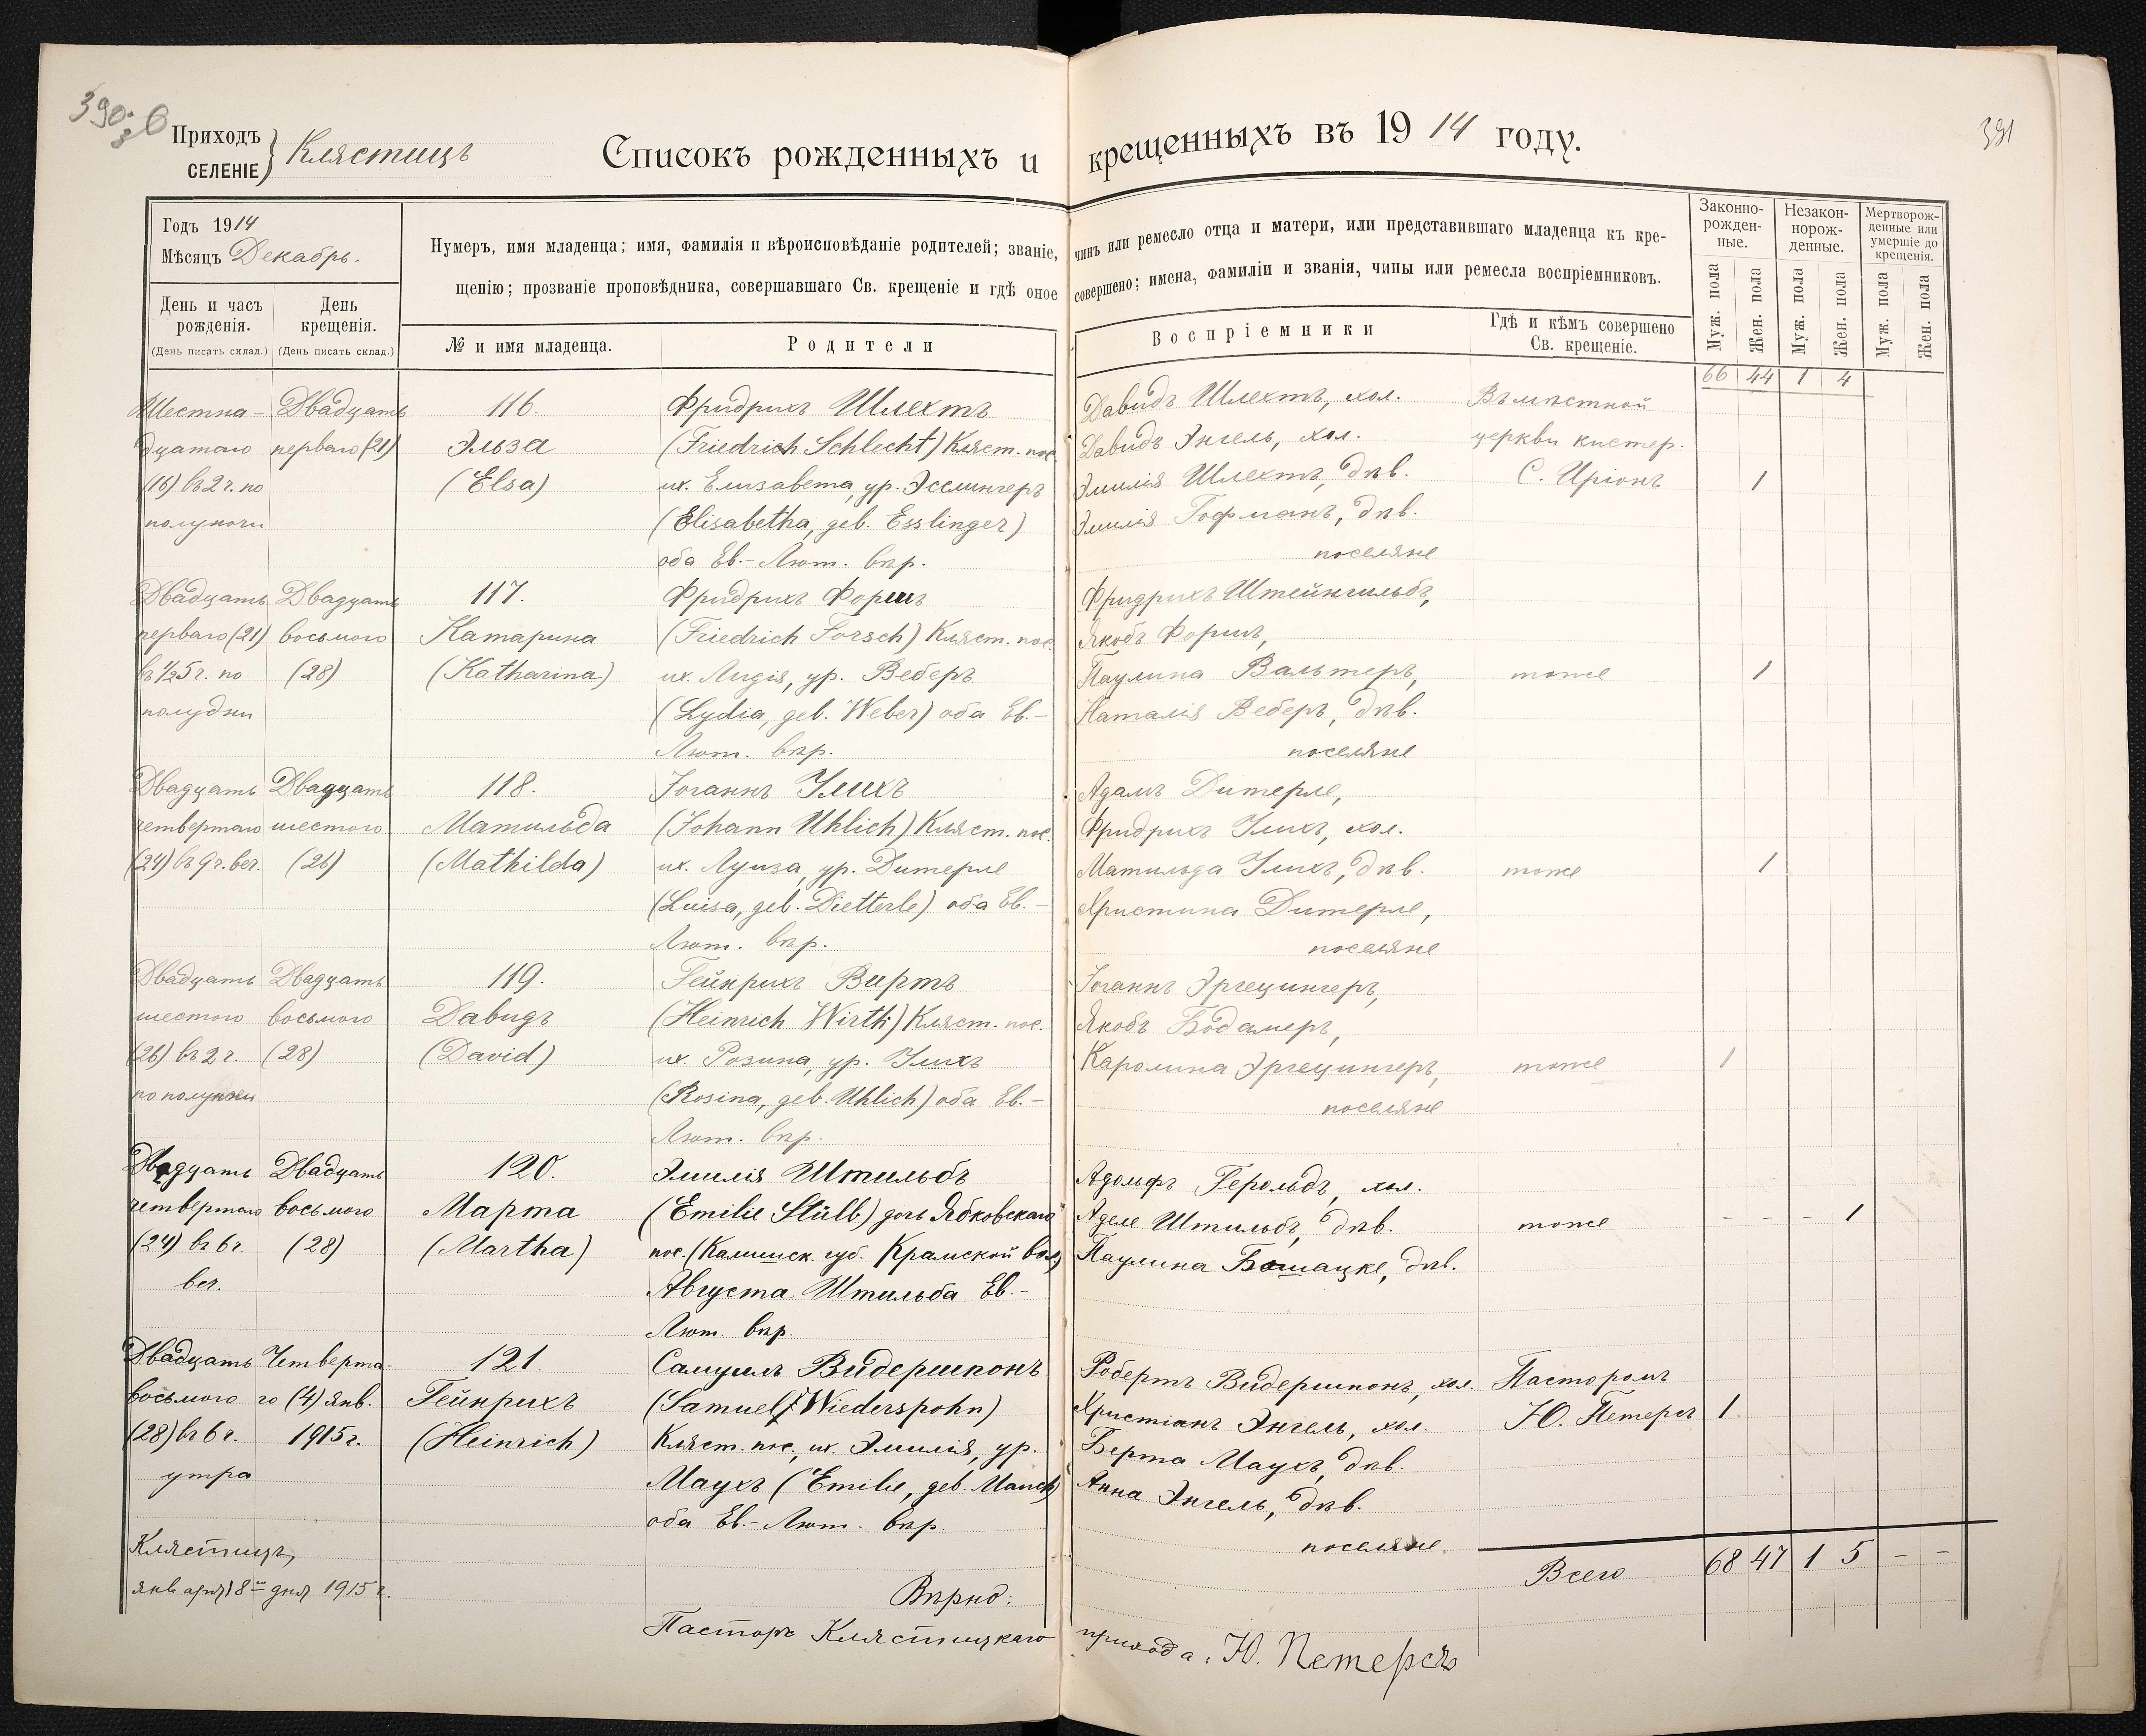 390
391
Приходъ
СЕЛЕНІЕ
Клястицъ
Списокъ рожденныхъ и крещенныхъ въ 1914 году.
Годъ 1914
Мѣсяцъ Декабрь.
День и часъ рожденія.
(День писать склад.)
День крещенія.
(День писать склад.)
Нумеръ, имя младенца; имя, фамилія и вѣроисповѣданіе родителей; званіе, чинъ или ремесло отца и матери, или представившаго младенца къ кре-
щенію; прозваніе проповѣдника, совершавшаго Св. крещеніе и гдѣ оное совершено; имена, фамиліи и званія, чины или ремесла воспріемниковъ.
№ и имя младенца.
Родители
Воспріемники
Гдѣ и кѣмъ совершено
Св. крещеніе.
Законно-
рожден-
ные.
Незакон-
норож-
денные.
Мертворож-
денные или
умершіе до
крещенія.
Муж. пола
Жен. пола
Муж. пола
Жен. пола
Муж. пола
Жен. пола
66 44 1 4
Шестна-
дцатаго
(16) въ 2 ч. по
полуночи
Двадцать
перваго (21)
116.
Эльза
(Elsa)
Фридрихъ Шлехтъ
(Friedrich Schlecht) Кляст. пос.
их. Елизавета, ур. Эсслингеръ
(Elisabetha, geb. Esslinger)
оба Ев.-Лют. вѣр.
Давидъ Шлехтъ, хол.
Давидъ Энгель, хол.
Эмилія Шлехтъ, дѣв.
Эмилія Гофманъ, дѣв.
поселяне
Въ мѣстной
церкви кистер.
С. Иріонъ
1
Двадцать
перваго (21)
въ ½5 ч. по
полудни
Двадцать
восьмого
(28)
117.
Катарина
(Katharina)
Фридрихъ Форшъ
(Friedrich Forsch) Кляст. пос.
их. Лидія, ур. Веберъ
(Lydia, geb. Weber) оба Ев.-
Лют. вѣр.
Фридрихъ Штейнгильбъ,
Якобъ Форшъ,
Паулина Вальтеръ,
Наталія Веберъ, дѣв.
поселяне
тоже
1
Двадцать
четвертаго
(24) въ 9 ч. веч.
Двадцать
шестого
(26)
118.
Матильда
(Mathilda)
Іоганнъ Улихъ
(Johann Uhlich) Кляст. пос.
их. Луиза, ур. Дитерле
(Luisa, geb. Dietterle) оба Ев.-
Лют. вѣр.
Адамъ Дитерле,
Фридрихъ Улихъ, хол.
Матильда Улихъ, дѣв.
Христина Дитерле,
поселяне
тоже
1
Двадцать
шестого
(26) въ 2 ч.
по полудни
Двадцать
восьмого
(28)
119.
Давидъ
(David)
Гейнрихъ Виртъ
(Heinrich Wirth) Кляст. пос.
их. Розина, ур. Улихъ
(Rosina, geb. Uhlich) оба Ев.-
Лют. вѣр.
Іоганнъ Эргецингеръ,
Якобъ Бодамеръ,
Каролина Эргецингеръ,
поселяне
тоже
1
Двадцать
четвертаго
(24) въ 6 ч.
веч.
Двадцать
восьмого
(28)
120.
Марта
(Martha)
Эмилія Штильбъ
(Emilie Stülb) дочь Ябковскаго
пос. (Калишск. губ. Крамской вол.)
Августа Штильба Ев.-
Лют. вѣр.
Адольфъ Герольдъ, хол.
Аделе Штильбъ, дѣв.
Паулина Бошацке, дѣв.
тоже
- - - 1
Двадцать
восьмого
(28) въ 6 ч.
утра
Четверта-
го (4) янв.
1915 г.
121.
Гейнрихъ
(Heinrich)
Самуилъ Видершпонъ
(Samuel Wiederspohn)
Кляст. пос., их. Эмилія, ур.
Маухъ (Emilie, geb. Mauch)
оба Ев.-Лют. вѣр.
Робертъ Видершпонъ, хол.
Христіанъ Энгель, хол.
Берта Маухъ, дѣв.
Анна Энгель, дѣв.
поселяне.
Пасторомъ
Ю. Петерсъ
1
Всего 68 47 1 5 - -
Клястицъ,
января 18 дня 1915 г.
Вѣрно:
Пасторъ Клястицкаго прихода: Ю. Петерсъ